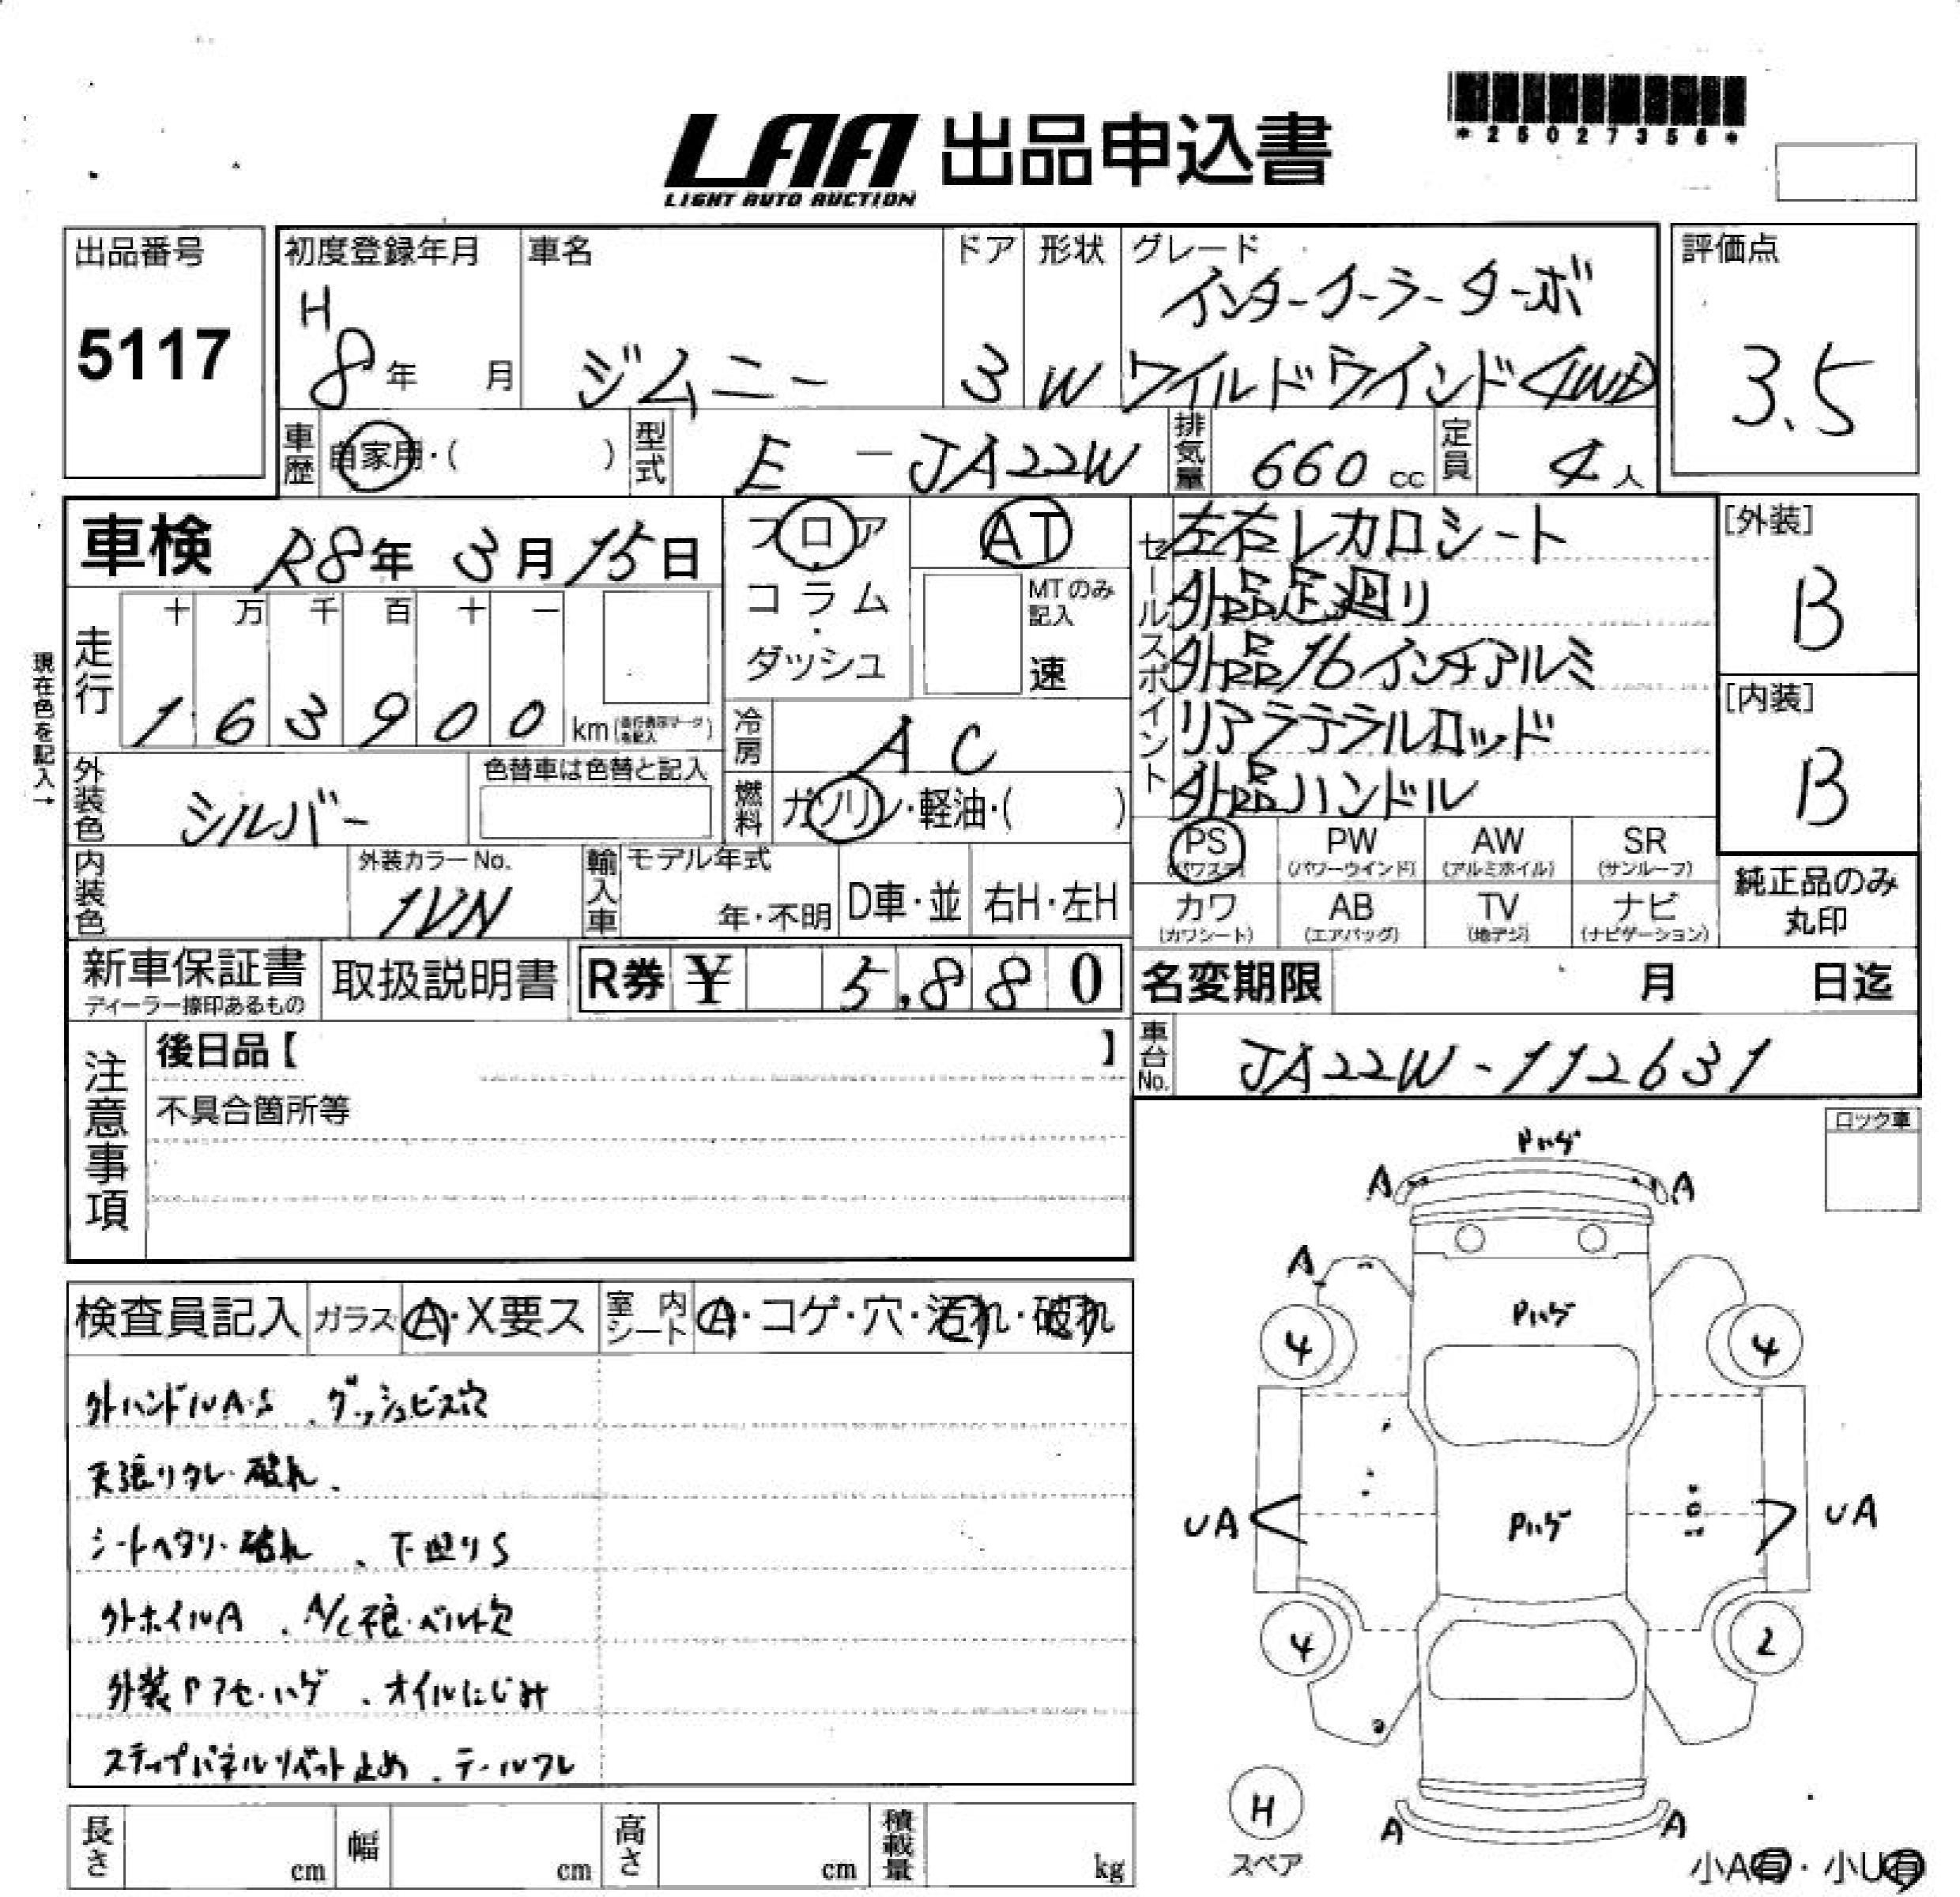 *26027356*
LAA 出品申込書
LIGHT AUTO AUCTION
出品番号
5117
初度登録年月
H
8年 月
車名
ジムニー
ドア
3
形状
W
グレード
インタークーラーターボ
ワイルドウインド4WD
評価点
3.5
車歴
自家用・( )
型式
E - JA22W
排気量
660 cc
定員
4人
車検 R8年 3月 15日
フロア
・
コラム
・
ダッシュ
AT
MTのみ
記入
速
セールスポイント
左右レカロシート
外品足廻り
外品16インチアルミ
リアラテラルロッド
外品ハンドル
[外装]
B
[内装]
B
現在色を記入→
走行
十 万 千 百 十 一
1 6 3 9 0 0 km
冷房
AC
外装色
シルバー
色替車は色替と記入
燃料
ガソリン・軽油・( )
PS
(パワステ)
PW
(パワーウインド)
AW
(アルミホイル)
SR
(サンルーフ)
カワ
(カワシート)
AB
(エアバッグ)
TV
(地デジ)
ナビ
(ナビゲーション)
純正品のみ
丸印
内装色
外装カラーNo.
1VN
輸入車
モデル年式
年・不明
D車・並
右H・左H
新車保証書
ディーラー捺印あるもの
取扱説明書
R券 ¥ 5,880
名変期限 月 日迄
注意事項
後日品【 】
不具合箇所等
車台No.
JA22W-112631
ロック車
検査員記入
ガラス
A・X要ス
室内
シート
A・コゲ・穴・汚れ・破れ
外ハンドルA・S 、ダッシュビス穴
天張りタレ・破れ、
シートヘタリ・破れ 、下廻りS
外ホイルA 、A/C不良・ベルト欠
外装Pアセ・ハゲ 、オイルにじみ
ステップパネルリベット止め 、テールワレ
Pハゲ
A A
A
Pハゲ
4 4
UA Pハゲ UA
4 2
H
スペア
A A
小A有・小U有
長さ cm
幅 cm
高さ cm
積載量 kg